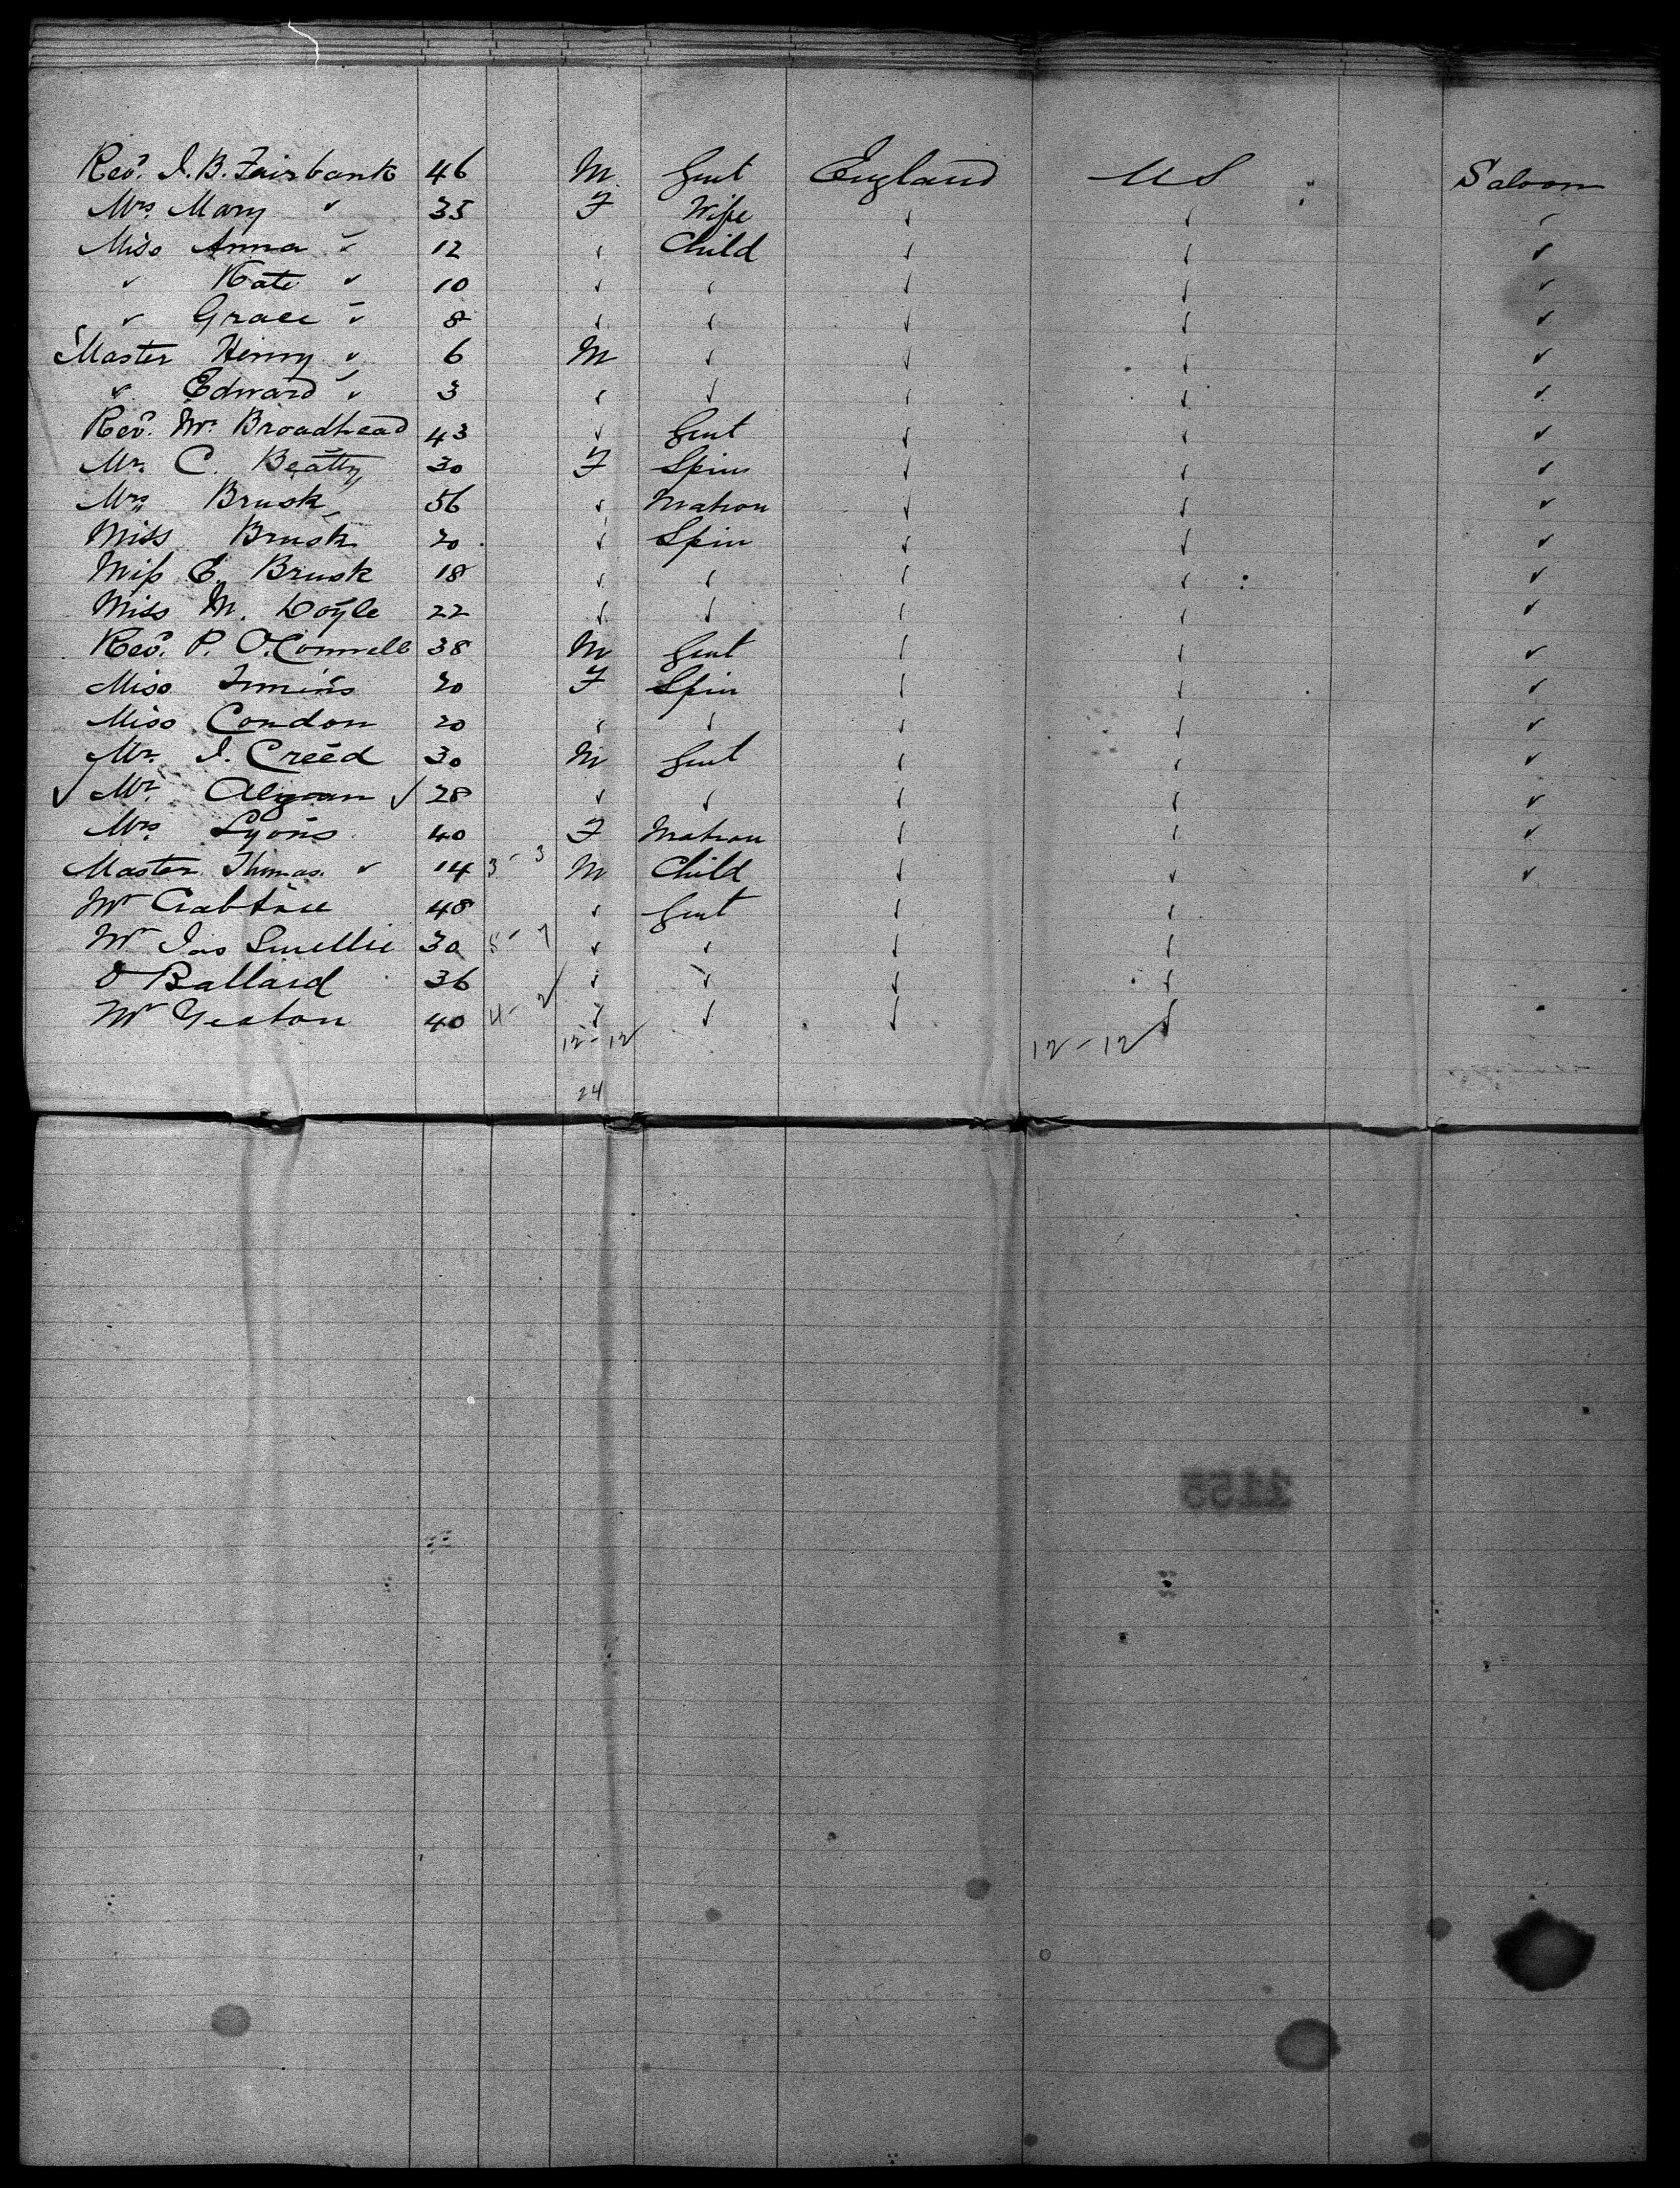 Rev. I. B. Fairbank 46 M Gent England US Saloon
Mrs Mary " 35 F Wife " " "
Miss Anna " 12 " Child " " "
" Kate " 10 " " " " "
" Grace " 8 " " " " "
Master Henry " 6 M " " " "
" Edward " 3 " " " " "
Rev. Mr. Broadhead 43 " Gent " " "
Mr. C. Beatty 30 F Spin " " "
Mrs Brusk 56 " Matron " " "
Miss Brusk 20 " Spin " " "
Miss E. Brusk 18 " " " " "
Miss M. Doyle 22 " " " " "
Rev. P. O.Connell 38 M Gent " " "
Miss 20 F Spin " " "
Miss Condon 20 " " " " "
Mr. I. Creed 30 M Gent " " "
✓ Mr. ✓ 28 " " " " "
Mrs. Lyons 40 F Matron " " "
Master Thomas " 14 3 - 3 M Child " " "
Mr Crabtree 48 " Gent " "
Mr Jas Smellie 30 5 - 7 " " " "
O Ballard 36 " " " "
Mr Yeaton 40 4 - 2 " " " "
12 - 12 12 - 12
24
1155